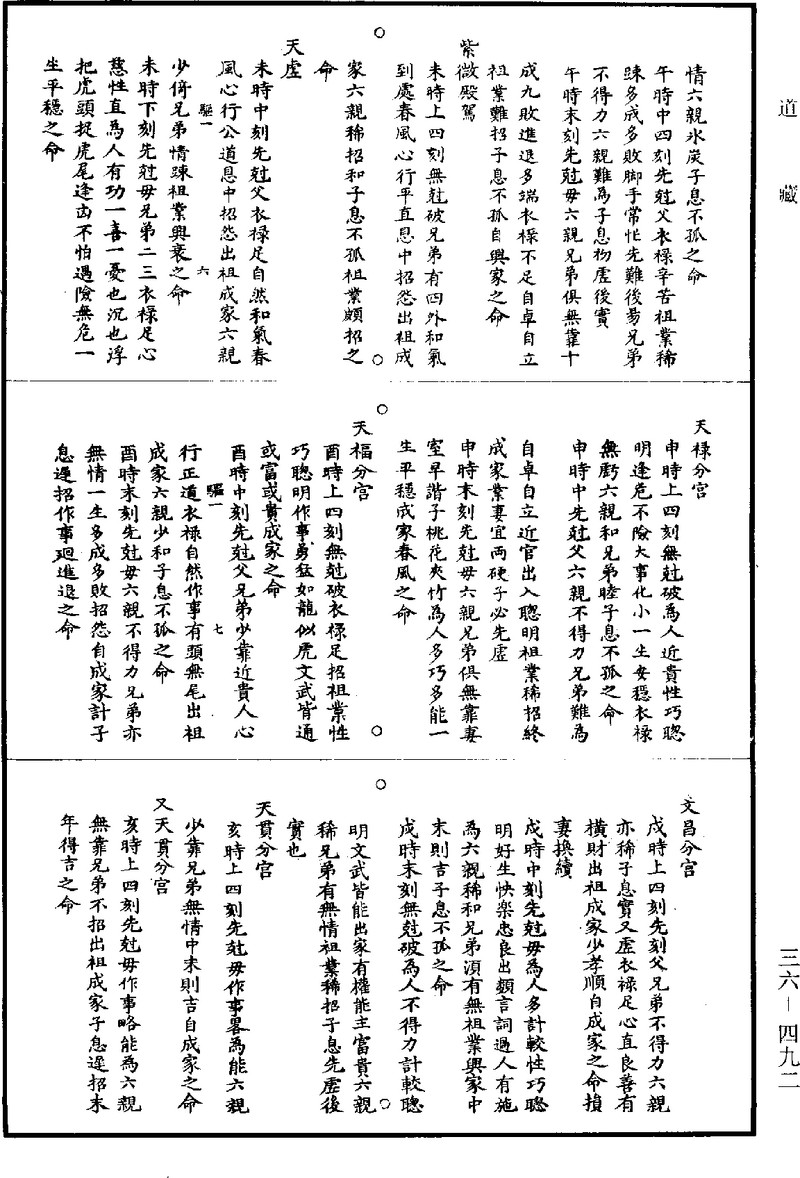 道藏
情六親氷炭子息不孤之命
午時中四刻先尅父衣祿辛苦祖業稀
踈多成多敗脚手常忙先難後昜兄弟
不得力六親難為子息杨虛後實
午時末刻先尅毋六親兄弟俱無靠十
成九敗進退多端衣祿不足自卓自立
祖業難招子息不孤自興家之命
紫微殿駕
未時上四刻無尅破兄弟有四外和氣
到處春風心行平直恩中招怨出祖成
家六親稀招和子息不孤祖業頗招之
命
天虛
未時中刻先尅父衣祿足自然和氣春
風心行公道恩中招怨出祖成家六親
驅一
六
少倚兄弟情踈祖業興衰之命
未時下刻先尅毋兄弟二三衣祿足心
慈性直為人有功一喜一憂也沉也浮
把虎頭捉虎尾逢凶不怕遇險無危一
生平穩之命
天祿分宫
申時上四刻無尅破為人近貴性巧聦
明逢危不險大事化小一生安穩衣祿
無虧六親和兄弟睦子息不孤之命
申時中先尅父六親不得力兄弟難為
自卓自立近官出入聦明祖業稀招終
成家業妻宜兩硬子必先虛
申時末刻先尅毋六親兄弟俱無靠妻
室早諧子桃花夾竹為人多巧多能一
生平穩成家春風之命
天福分宫
酉時上四刻無尅破衣祿足招祖業性
巧聰明作事勇猛如龍似虎文武皆通
或富或貴成家之命
酉時中刻先尅父兄弟少靠近貴人心
驅一
七
行正道衣祿自然作事有頭無尾出祖
成家六親少和子息不孤之命
酉時末刻先尅毋六親不得力兄弟亦
無情一生多成多敗招怨自成家計子
息遲招作事廻進退之命
文昌分宫
戍時上四刻先刻父兄弟不得力六親
亦稀子息實又虛衣祿足心直良善有
橫財出祖成家少孝順自成家之命損
妻換續
戍時中刻先尅毋為人多計較性巧聦
明好生快樂忠良出頭言詞過人有施
為六親稀和兄弟須有無祖業興家中
末則吉子息不孤之命
戍時末刻無尅破為人不得力計較聰
明文武皆能出家有權能主富貴六親
稀兄弟有無情祖業稀招子息先虛後
實也
天貫分宫
亥時上四刻先尅毋作事畧為能六親
少靠兄弟無情中末則吉自成家之命
又天貫分宫
亥時上四刻先尅毋作事略能為六親
無靠兄弟不招出祖成家子息遲招末
年得吉之命
三六－四九二